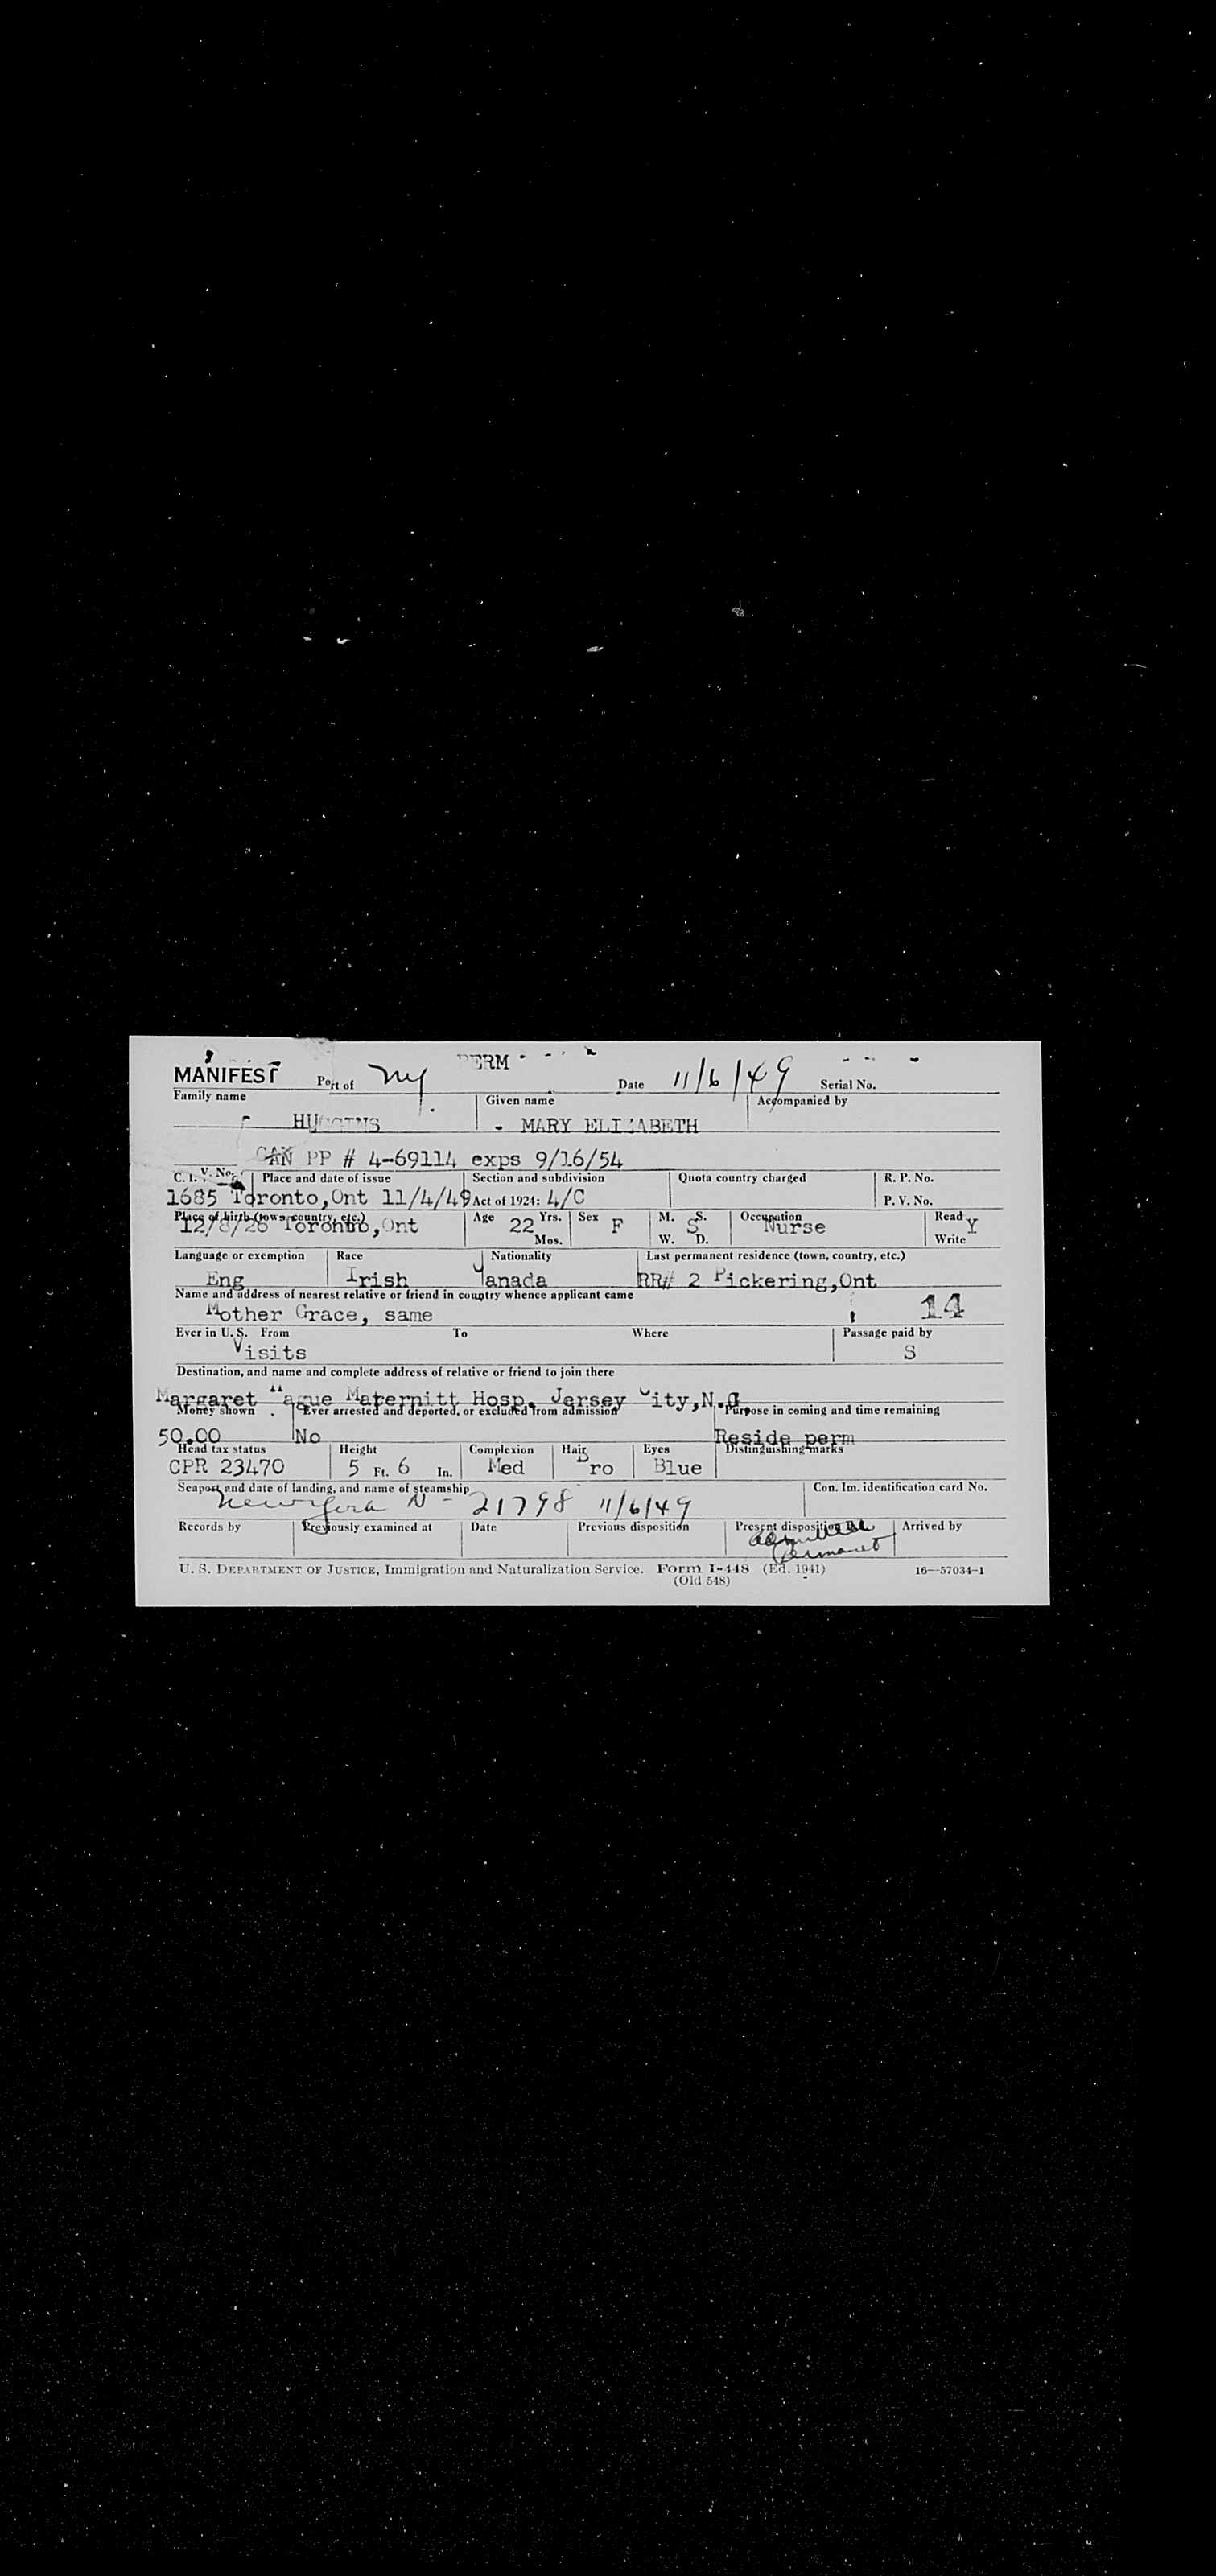 PERM
MANIFEST Port of NY Date 11/6/49 Serial No.
Family name Given name Accompanied by
HUGGINS - MARY ELIZABETH
CAN PP # 4-69114 exps 9/16/54
C. I. V. No. Place and date of issue Section and subdivision Quota country charged R. P. No.
1685 Toronto,Ont 11/4/49 Act of 1924: 4/C P. V. No.
Place of birth (town, country, etc.) Age 22 Yrs. Mos. Sex F M. S. W. D. S Occupation Read Write Y
12/8/26 Toronto,Ont Nurse
Language or exemption Race Nationality Last permanent residence (town, country, etc.)
Eng Irish Canada RR# 2 Pickering,Ont
Name and address of nearest relative or friend in country whence applicant came
Mother Grace, same 14
Ever in U. S. From To Where Passage paid by
Visits S
Destination, and name and complete address of relative or friend to join there
Margaret Hague Maternitt Hosp. Jersey City,N.J
Money shown Ever arrested and deported, or excluded from admission Purpose in coming and time remaining
50.00 No Reside perm
Head tax status Height Complexion Hair Eyes Distinguishing marks
CPR 23470 5 Ft. 6 In. Med Bro Blue
Seaport and date of landing, and name of steamship Con. Im. identification card No.
N - 21798 11/6/49
Records by Previously examined at Date Previous disposition Present disposition Arrived by
admitted
permanent
U. S. DEPARTMENT OF JUSTICE, Immigration and Naturalization Service. Form I-448 (Ed. 1941) 16—57034-1
(Old 548)